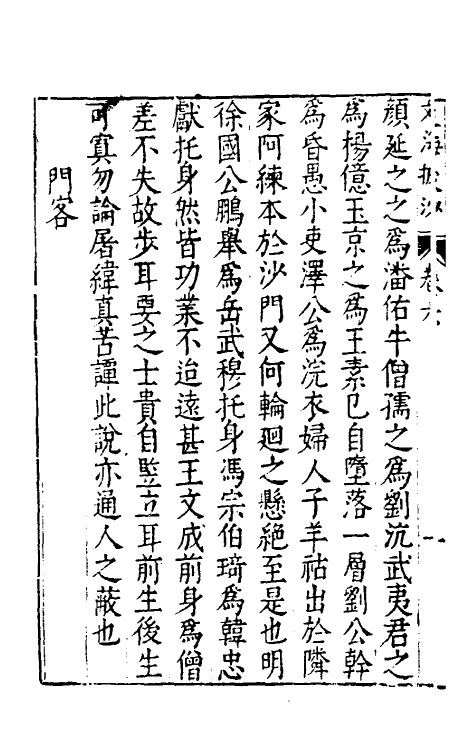 文海披沙 卷六 一
顏延之之為潘佑牛僧孺之為劉沆武夷君之
為楊億王京之為王素已自墮落一層劉公幹
為昏愚小吏澤公為浣衣婦人子羊祜出於隣
家阿練本於沙門又何輪迴之懸絶至是也明
徐國公鵬舉為岳武穆托身馮宗伯琦為韓忠
獻托身然皆功業不迨遠甚王文成前身為僧
差不失故步耳要之士貴自竪立耳前生後生
可寘勿論屠緯真苦譚此說亦通人之蔽也
門客